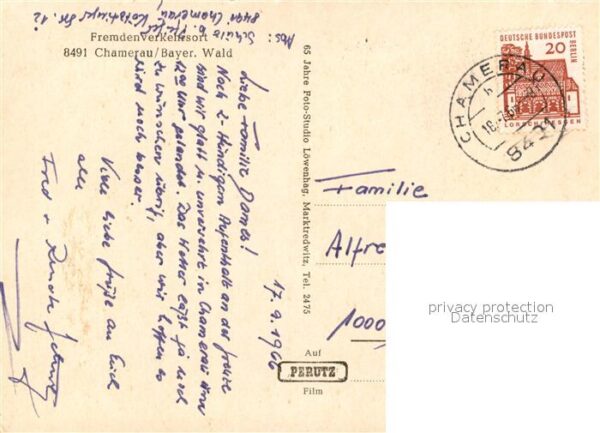 Abs: Schütz b. Pleß
8491 Chamerau, Kötztinger Str. 12
Fremdenverkehrsort
8491 Chamerau/Bayer. Wald
17.9.1966
Liebe Familie Dames!
Nach 2-stündigem Aufenthalt an der Grenze
sind wir glatt u. unversehrt in Chamerau
gelandet. Das Wetter läßt ja noch
zu wünschen übrig, aber wir hoffen es
wird noch besser.
Viele liebe Grüße an Euch
alle
Fred +
65 Jahre Foto-Studio Löwenhag, Marktredwitz, Tel. 2475
Auf
PERUTZ
Film
DEUTSCHE BUNDESPOST
BERLIN
20
LORSCH/HESSEN
CHAMERAU
8491
Familie
Alfre
1000
privacy protection
Datenschutz